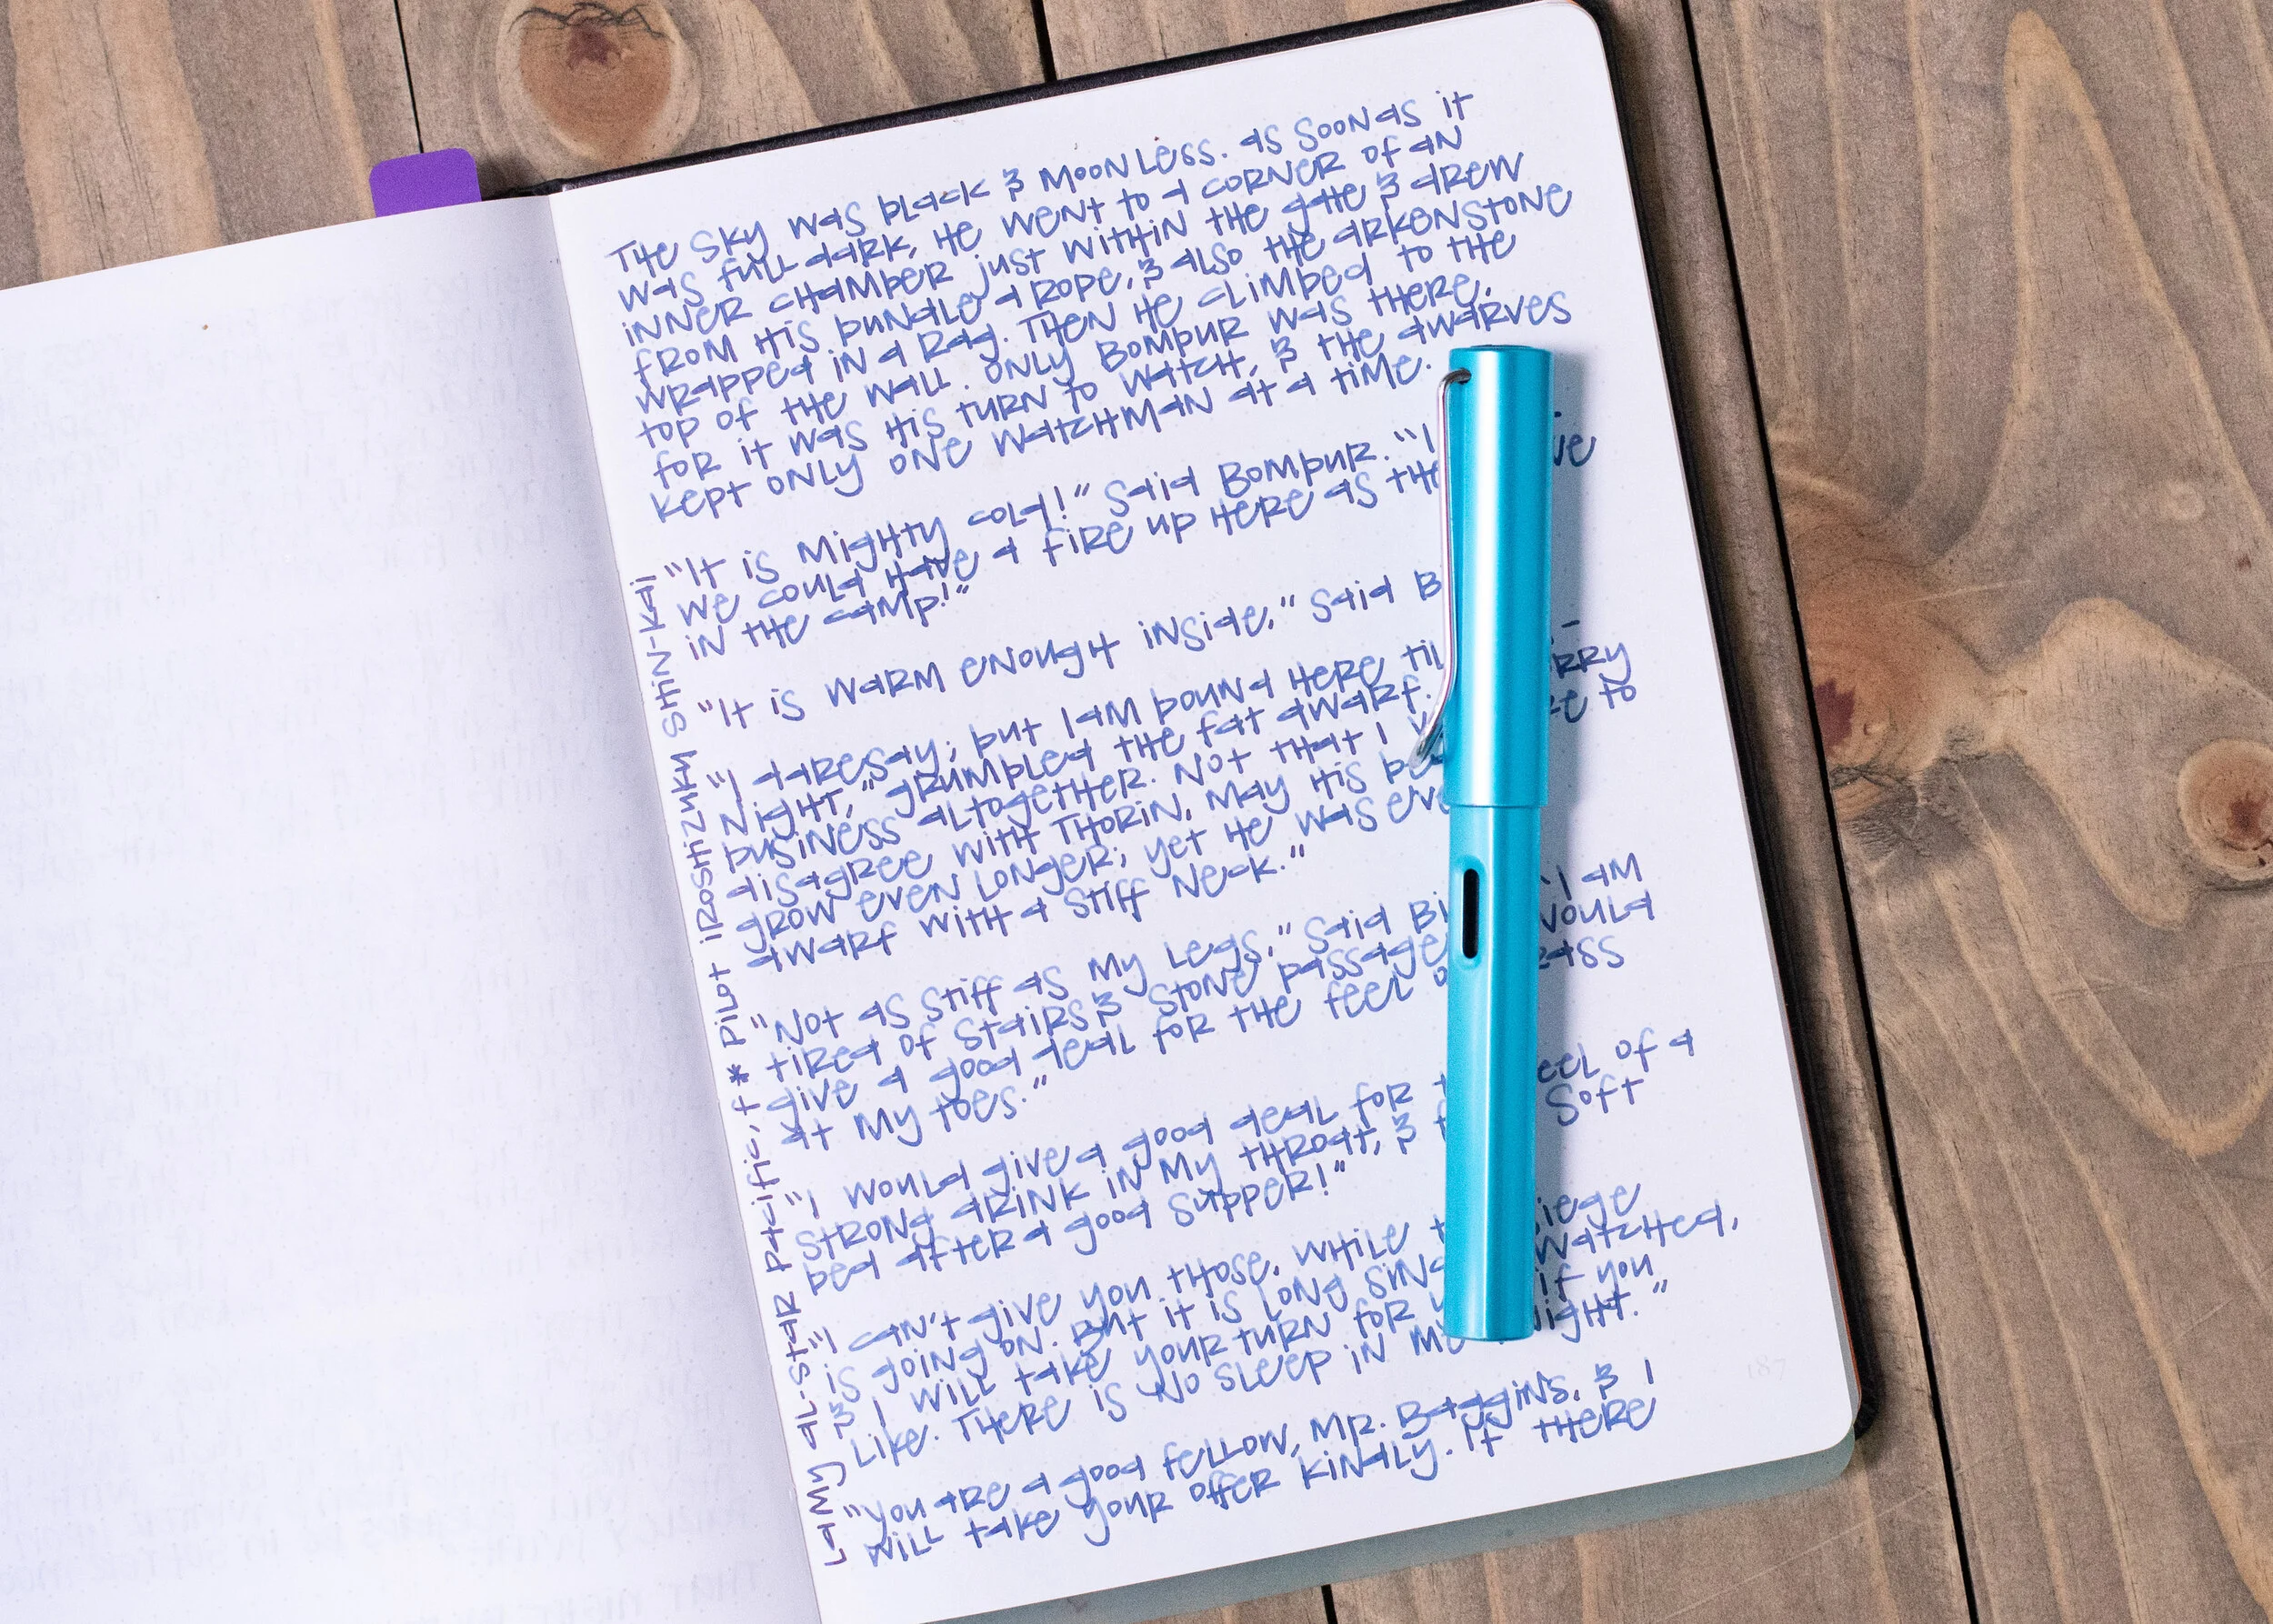 The sky was black & moonless. as soon as it
was full dark, he went to a corner of an
inner chamber just within the gate & drew
from his bundle a rope, & also the arkenstone
wrapped in a rag. Then he climbed to the
top of the wall. Only Bombur was there,
for it was his turn to watch, & the dwarves
kept only one watchman at a time.
"It is mighty cold!" Said Bombur. "I
we could have a fire up here as the
in the camp!"
"It is warm enough inside," Said B
"I daresay; but I am bound here til
night," grumbled the fat dwarf. rry
business altogether. Not that I to
disagree with Thorin, may his
grow even longer; yet he was
dwarf with a stiff neck."
"Not as stiff as my legs," Said Bi "I am
tired of stairs & stone passage would
give a good deal for the feel
at my toes."
"I would give a good deal for eel of a
strong drink in my throat, & soft
bed after a good supper!"
"I can't give you those, while iege
is going on. But it is long watched,
& I will take your turn for if you
like. There is no sleep in night."
"You are a good fellow, Mr. Baggins, & I
will take your offer kindly. If there
Lamy al-star pacific, f * Pilot iroshizuku shin-kai
187